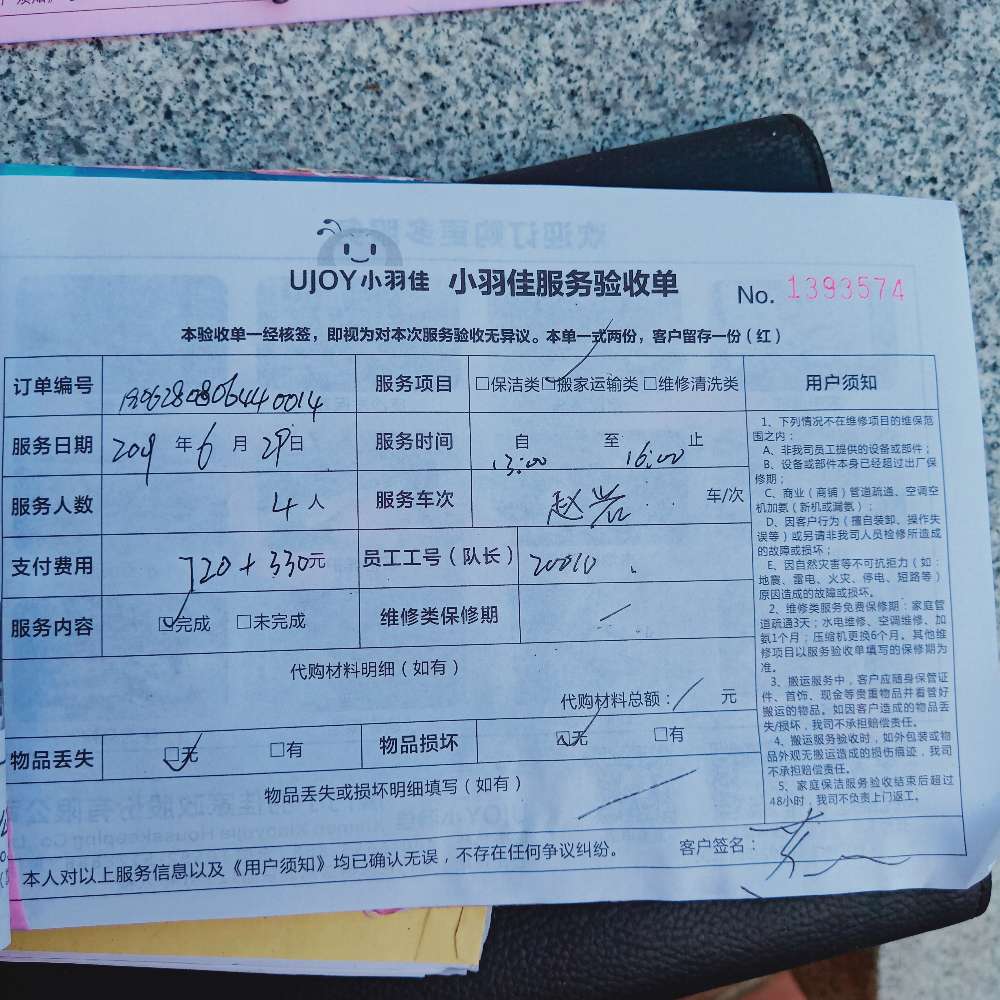 UJOY小羽佳 小羽佳服务验收单 No. 1393574
本验收单一经核签，即视为对本次服务验收无异议。本单一式两份，客户留存一份（红）
订单编号 1906280806440014 服务项目 □保洁类 ☑搬家运输类 □维修清洗类
服务日期 2019 年 6 月 29 日 服务时间 自 13:00 至 16:00 止
服务人数 4 人 服务车次 赵岩 车/次
支付费用 720+330元 员工工号（队长） 20010
服务内容 ☑完成 □未完成 维修类保修期 /
代购材料明细（如有）
代购材料总额： / 元
物品丢失 ☑无 □有 物品损坏 ☑无 □有
物品丢失或损坏明细填写（如有）
本人对以上服务信息以及《用户须知》均已确认无误，不存在任何争议纠纷。 客户签名：
用户须知
1、下列情况不在维修项目的维保范
围之内：
A、非我司员工提供的设备或部件；
B、设备或部件本身已经超过出厂保
修期；
C、商业（商铺）管道疏通、空调空
机加氨（新机或漏氨）；
D、因客户行为（擅自装卸、操作失
误等）或另请非我司人员检修所造成
的故障或损坏；
E、因自然灾害等不可抗拒力（如：
地震、雷电、火灾、停电、短路等）
原因造成的故障或损坏。
2、维修类服务免费保修期：家庭管
道疏通3天；水电维修、空调维修、加
氨1个月；压缩机更换6个月。其他维
修项目以服务验收单填写的保修期为
准。
3、搬运服务中，客户应随身保管证
件、首饰、现金等贵重物品并看管好
搬运的物品。如因客户造成的物品丢
失/损坏，我司不承担赔偿责任。
4、搬运服务验收时，如外包装或物
品外观无搬运造成的损伤痕迹，我司
不承担赔偿责任。
5、家庭保洁服务验收结束后超过
48小时，我司不负责上门返工。